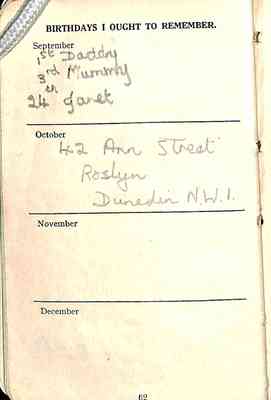 BIRTHDAYS I OUGHT TO REMEMBER.
September
1st Daddy
3rd Mummy
24th Janet
October
42 Ann Street
Roslyn
Dunedin N.W.1.
November
December
62